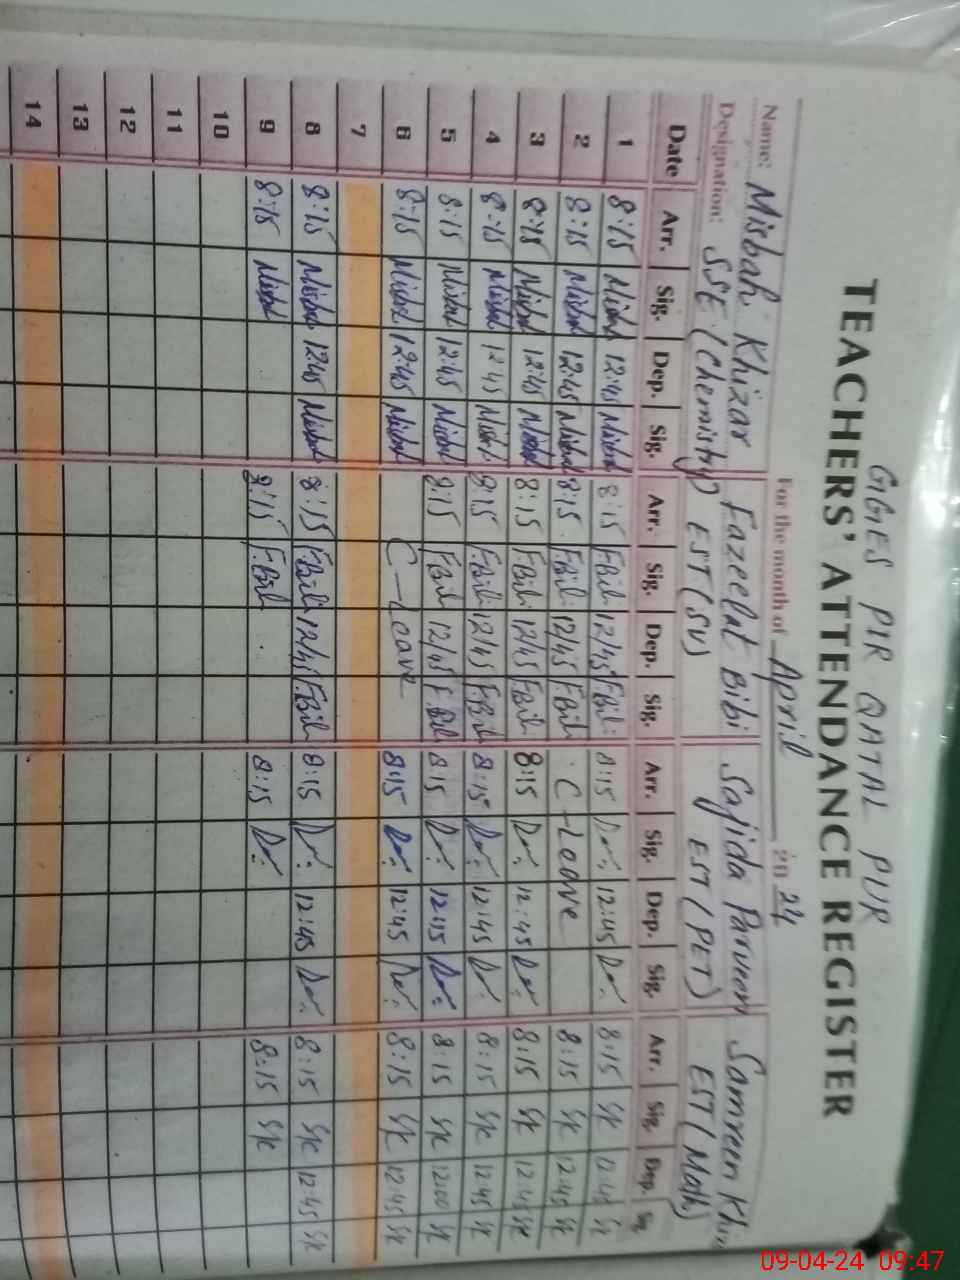 GGES PIR QATAL PUR
TEACHERS' ATTENDANCE REGISTER
For the month of April 2024
Name: Misbah Khizar Fazeelat Bibi Sajida Parveen Samreen
Designation: SSE (Chemistry) EST (SV) EST (PET) EST (Math)
Date Arr. Sig. Dep. Sig. Arr. Sig. Dep. Sig. Arr. Sig. Dep. Sig. Arr. Sig. Dep. Sig.
1 8:15 Misbah 12:45 Misbah 8:15 F.Bibi 12:45 F.Bibi 8:15 12:45 8:15 S/K 12:45 S/K
2 8:15 Misbah 12:45 Misbah 8:15 F.Bibi 12:45 F.Bibi C-Leave 8:15 S/K 12:45 S/K
3 8:15 Misbah 12:45 Misbah 8:15 F.Bibi 12:45 F.Bibi 8:15 12:45 8:15 S/K 12:45 S/K
4 8:15 Misbah 12:45 Misbah 8:15 F.Bibi 12:45 F.Bibi 8:15 12:45 8:15 S/K 12:45 S/K
5 8:15 Misbah 12:45 Misbah 8:15 F.Bibi 12:45 F.Bibi 8:15 12:45 8:15 S/K 12:00 S/K
6 8:15 Misbah 12:45 Misbah C-Leave 8:15 12:45 8:15 S/K 12:45 S/K
7
8 8:15 Misbah 12:45 Misbah 8:15 F.Bibi 12:45 F.Bibi 8:15 12:45 8:15 S/K 12:45 S/K
9 8:15 Misbah 8:15 F.Bibi 8:15 8:15 S/K
10
11
12
13
14
09-04-24 09:47